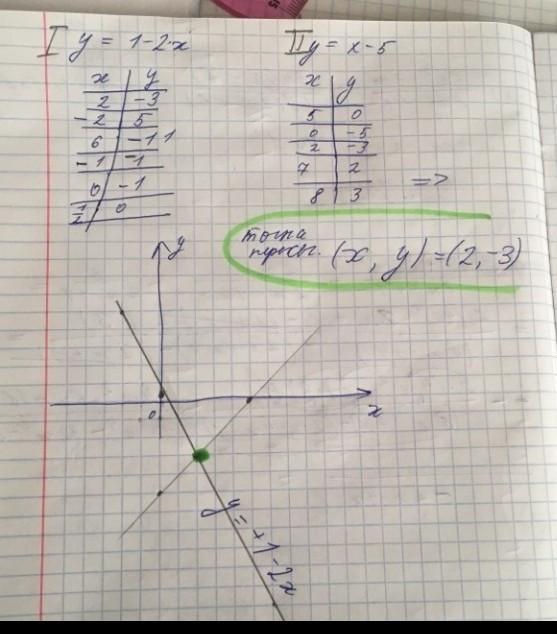 I y = 1-2·x
x y
2 -3
-2 5
6 -11
-1 -1
0 -1
1/2 0
II y = x-5
x y
5 0
0 -5
2 -3
7 2
8 3
=>
(x, y) = (2, -3)
y
0
x
y = +1-2x